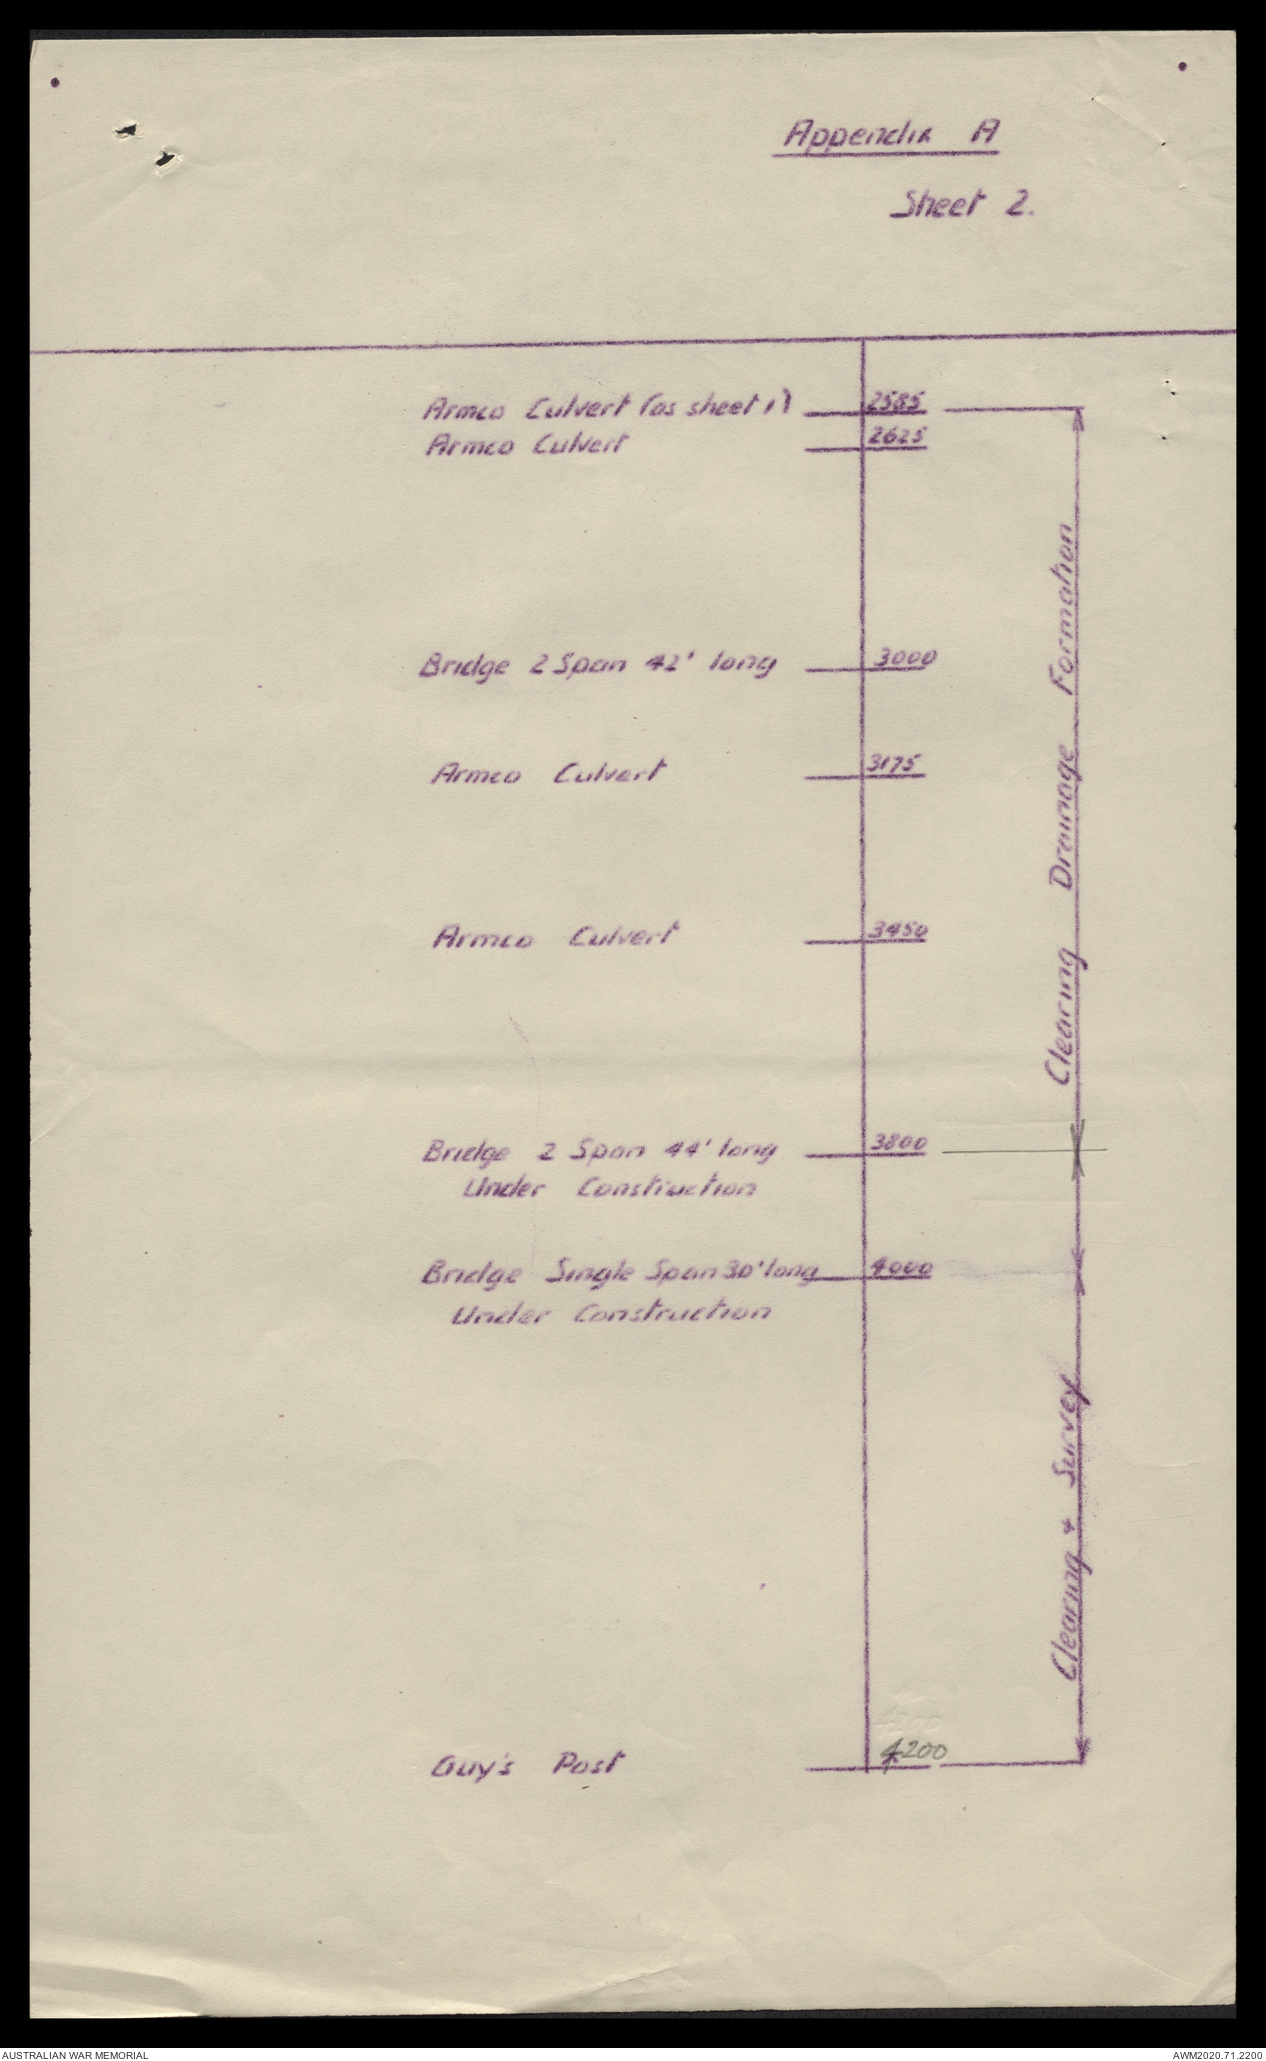 Appendix A
Sheet 2.
Armco Culvert (as sheet 1) 2585
Armco Culvert 2625
Bridge 2 Span 42' long 3000
Armco Culvert 3175
Armco Culvert 3450
Bridge 2 Span 44' long 3800
Under Construction
Bridge Single Span 30' long 4000
Under Construction
Guy's Post 4200
Clearing Drainage Formation
Clearing + Survey
AUSTRALIAN WAR MEMORIAL
AWM2020.71.2200